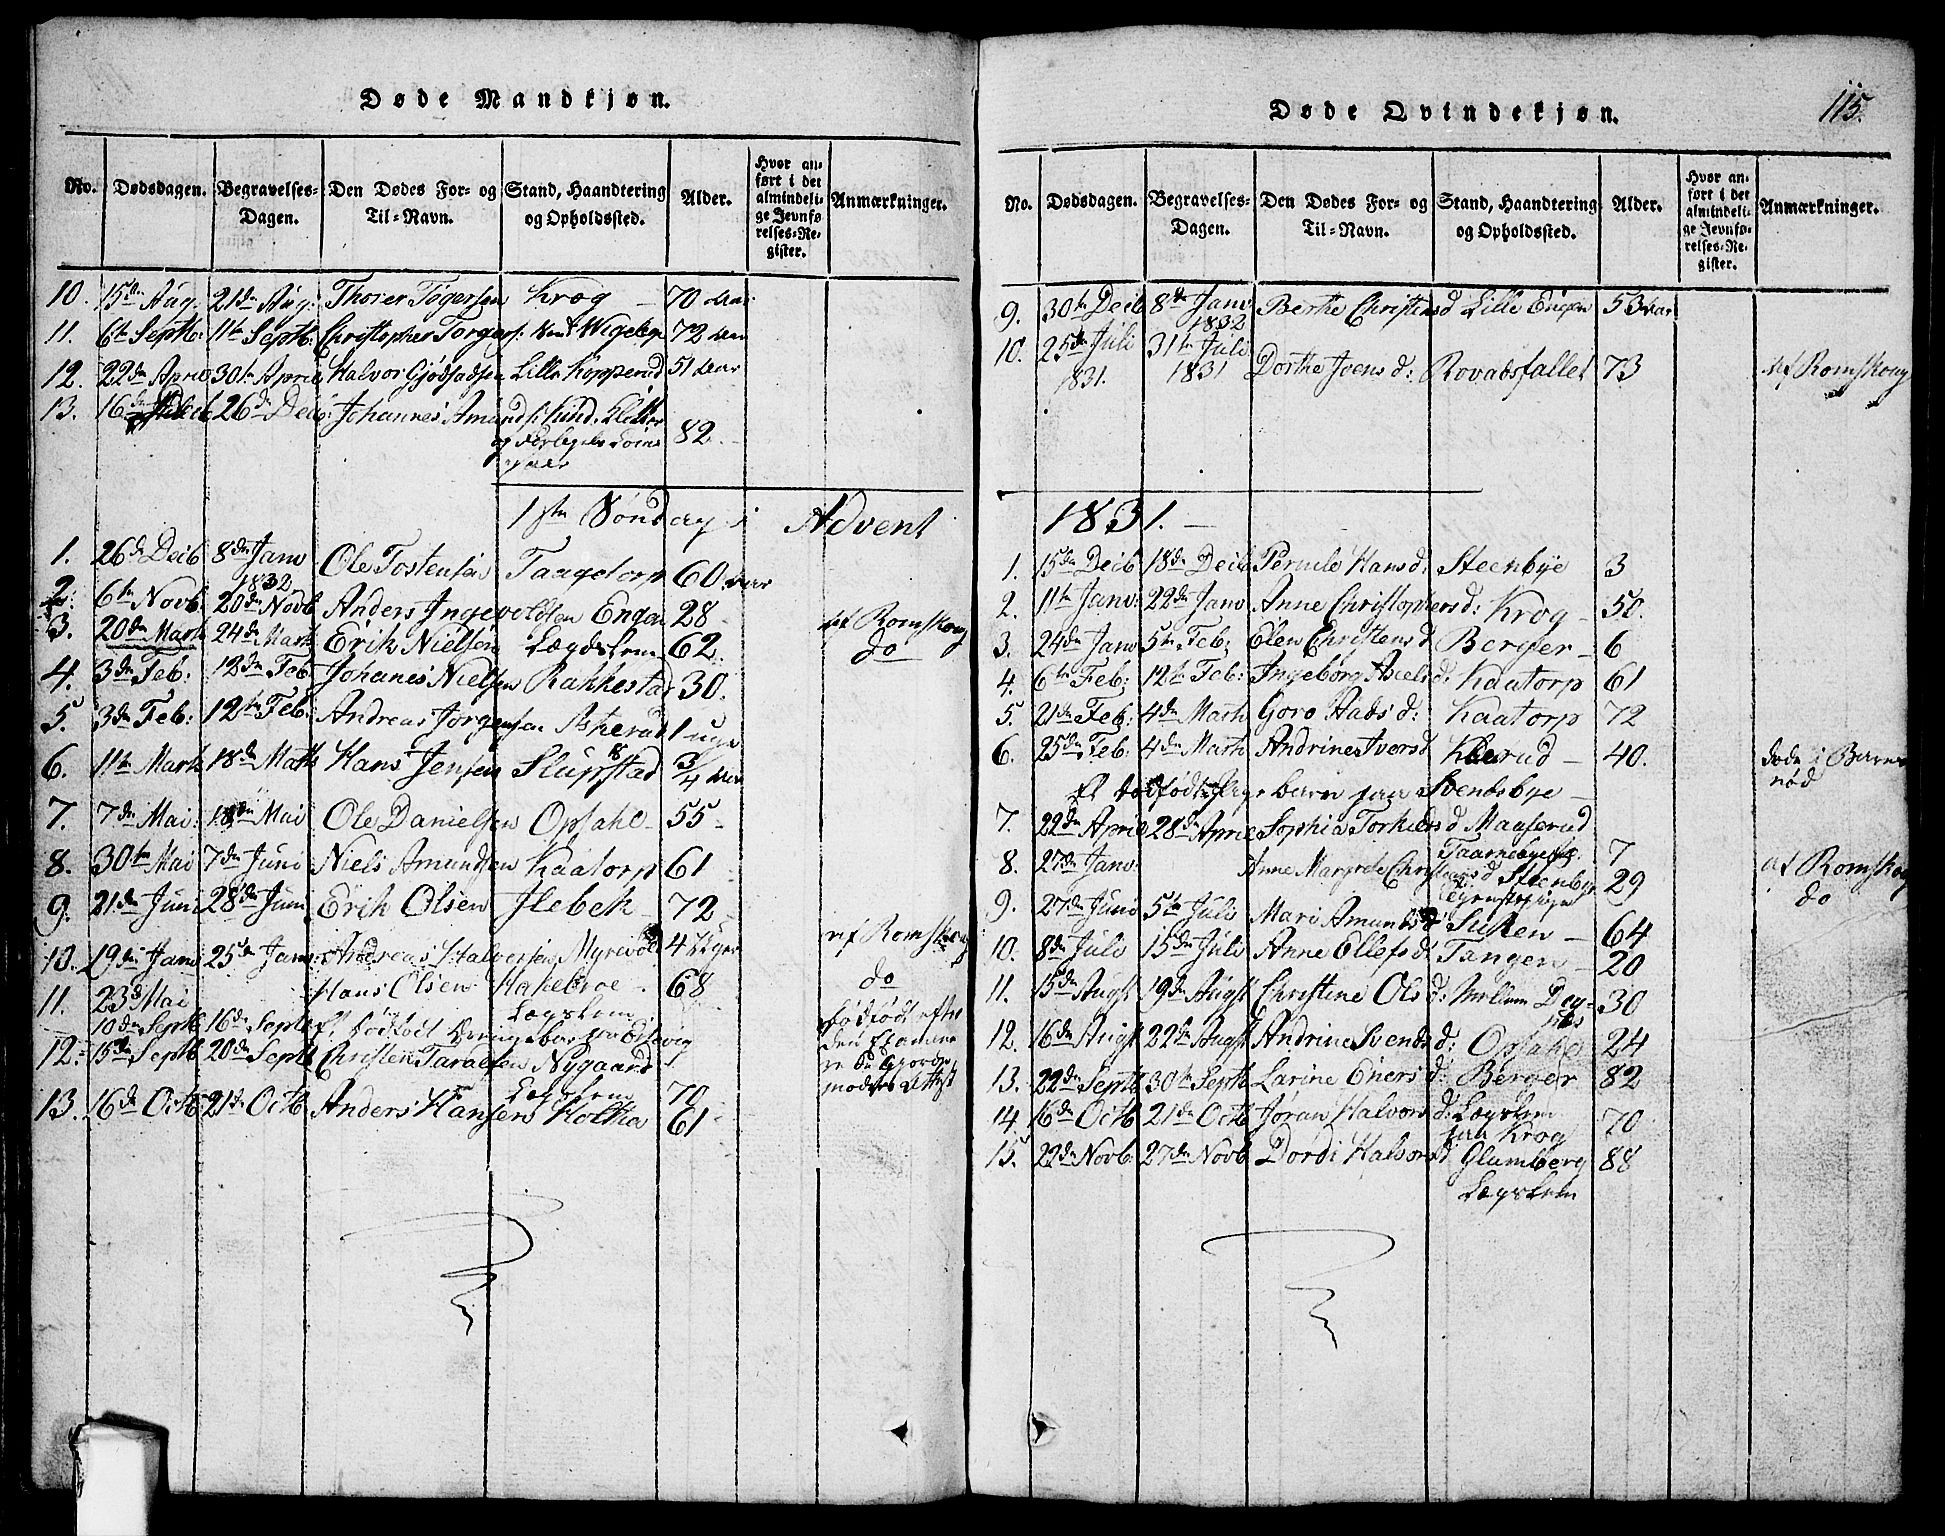 Døde Mandkjøn.
No. Dødsdagen. Begravelses-Dagen. Den Dødes For- og Til-Navn. Stand, Haandtering og Opholdssted. Alder. Hvor anført i det almindelige Jevnførelses-Register. Anmærkninger.
10. 15de Aug. 21de Aug: Thorer Togersen Krog 70 Aar
11. 6te Septb: 11te Septb: Christopher Torgers:
72 Aar
12. 22de April 30te April Halvor Lille Kopperud 51 Aar
13. 16de Decb 26de Decb: Johannes Amunds:
82
1ste Søndag i Advent
1. 26de Decb 8de Janv 1832 Ole Tostensen Taagetorp 60 Aar
2. 6te Novb: 20de Novb Anders Ingevoldsen Engen 28
3. 20de Marts 24de Marts Erik Nielsen Lægdslem 62 af Romskoug
4. 3de Feb: 12de Feb Johanes Nielsen Rakkestad 30. do
5. 3de Feb: 12te Feb: Andreas Jorgensen Asherud 1 uge
6. 11te Marts 18de Marts Hans Jensen Slupstad 3/4 Aar
7. 7de Mai: 18de Mai Ole Danielsen Opsahl 55
8. 30te Mai 7de Juni Niels Amundsen Kaatorp 61
9. 21de Juni 28de Juni Erik Olsen Ilebek 72
10. 19de Janv 25de Janv Andreas Halvorsen Myrevold 4 Uger af Romskoug
11. 23de Mai Hans Olsen Hakebroe 68 do
Lægslem
10de Septb 16de Septb Et dødfødt Drengebarn
dødfødt efter
12. 15de Septb 20de Septb Christen Taralsen Nygaard
Lægslem 70
13. 16de Octb 21de Octb Anders Hansen Holtha 61
Døde Qvindekjøn.
115.
No. Dødsdagen. Begravelses-Dagen. Den Dødes For- og Til-Navn. Stand, Haandtering og Opholdssted. Alder. Hvor anført i det almindelige Jevnførelses-Register. Anmærkninger.
9. 30te Decb 8de Janv 1832 Berthe Christensd Lille Engen 53 Aar
10. 25de Juli 1831. 31te Juli 1831 Dorthe Joensd: Rovabsfallet 73 af Romskoug
1831.
1. 15de Decb 18de Decb Pernile Hansd: Steenbye 3
2. 11te Janv: 22de Janv Anne Christophersd: Krog 50.
3. 24de Janv 5te Feb; Elen Christensd Berger 6
4. 6te Feb; 12te Feb: Ingeborg Axelsd: Kaatorp 61
5. 21de Feb: 4de Marts Goro Hadsd: Kaatorp 72
6. 25de Feb: 4de Marts Andrine Iversd Klerud 40. døde i Barnsnød
Et dødfødt Pige barn paa Svendsbye
7. 22de April 28de April Sophia Torkildsd Maaserud
8. 27de Janv: Anne Margrete Christiansd Taarnebye 7 af Romskoug
Steenbye 29 do
9. 27de Juni 5te Juli Mari Amundsd Sulken 64
10. 8de Juli 15de Juli Anne Ellefsd: Tangen 20
11. 15de Augst 19de Augst Christine Olsd: Mellem 30
12. 16de Augst 22de Augst Andrine Svendsd: Opsahl 24
13. 22de Septb 30te Septb Larine Enersd: Berger 82
14. 16de Octb 21de Octb Jøran Halvorsd: Lægslem paa Krog 70.
15. 22de Novb. 27de Novb Dordi Halvorsd Glumberg 88
Lægslem